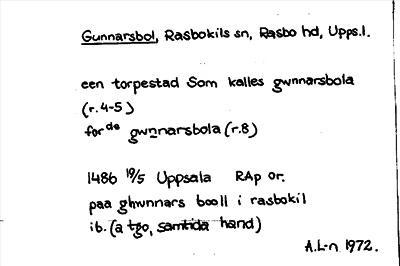 Gunnarsbol, Rasbokils sn, Rasbo hd, Upps.l.
een torpestad Som kalles gwnnarsbola
(r.4-5)
for de gwnnarsbola (r.8)
1486 19/5 Uppsala RAp or.
paa ghwnnars booll i rasbokil
ib. (a tgo, samtida hand)
A.L-n 1972.